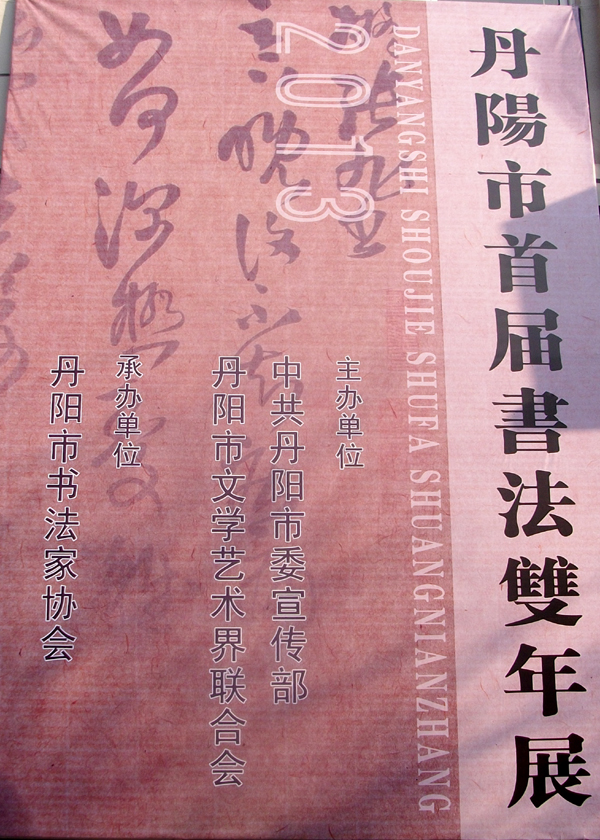 丹陽市首届書法雙年展
DANYANGSHI SHOUJIE SHUFA SHUANGNIANZHANG
2013
主办单位
中共丹阳市委宣传部
丹阳市文学艺术界联合会
承办单位
丹阳市书法家协会